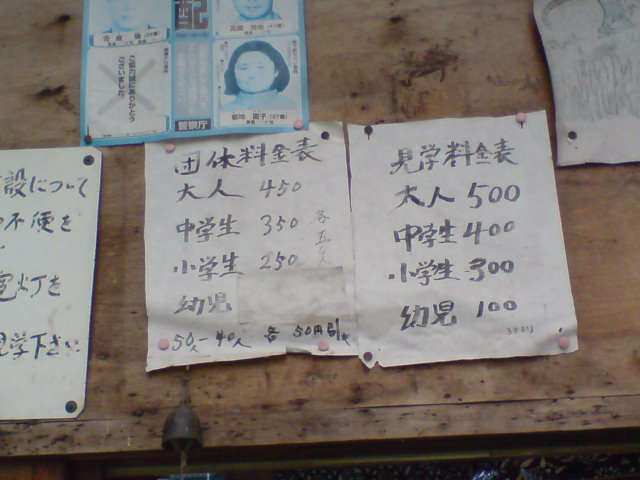 配
ご協力誠にありがとう
ございました。
菊地 直子
警察庁
設について
不便を
灯を
見学下さい
団体料金表
大人 450
中学生 350
小学生 250
幼児
50人-40人 各 50円引
見学料金表
大人 500
中学生 400
小学生 300
幼児 100